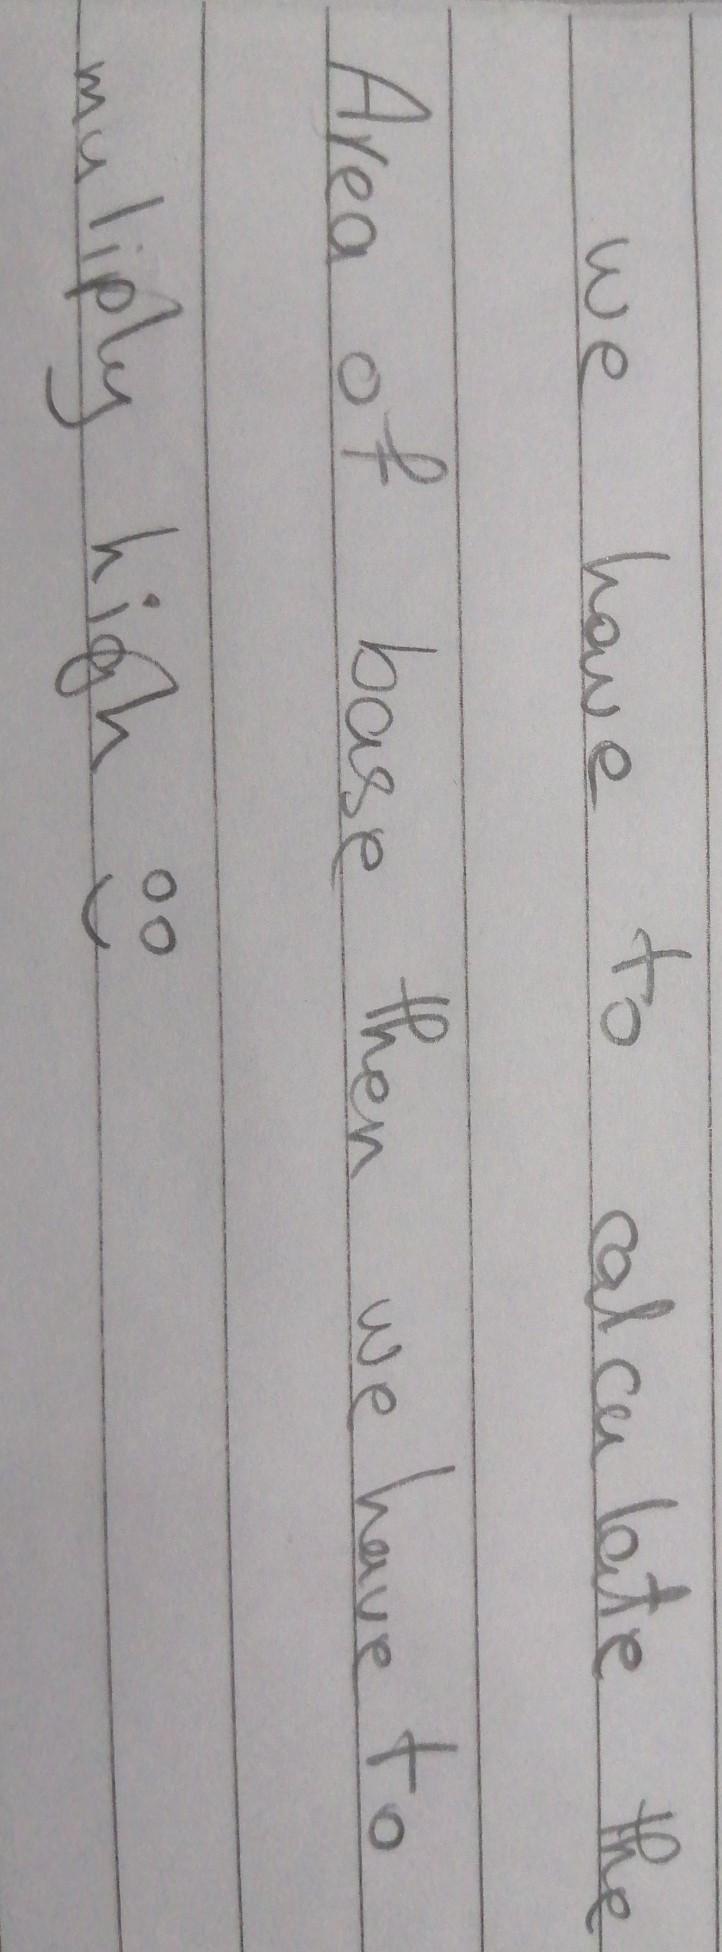 we have to calculate the
Area of base then we have to
muliply high